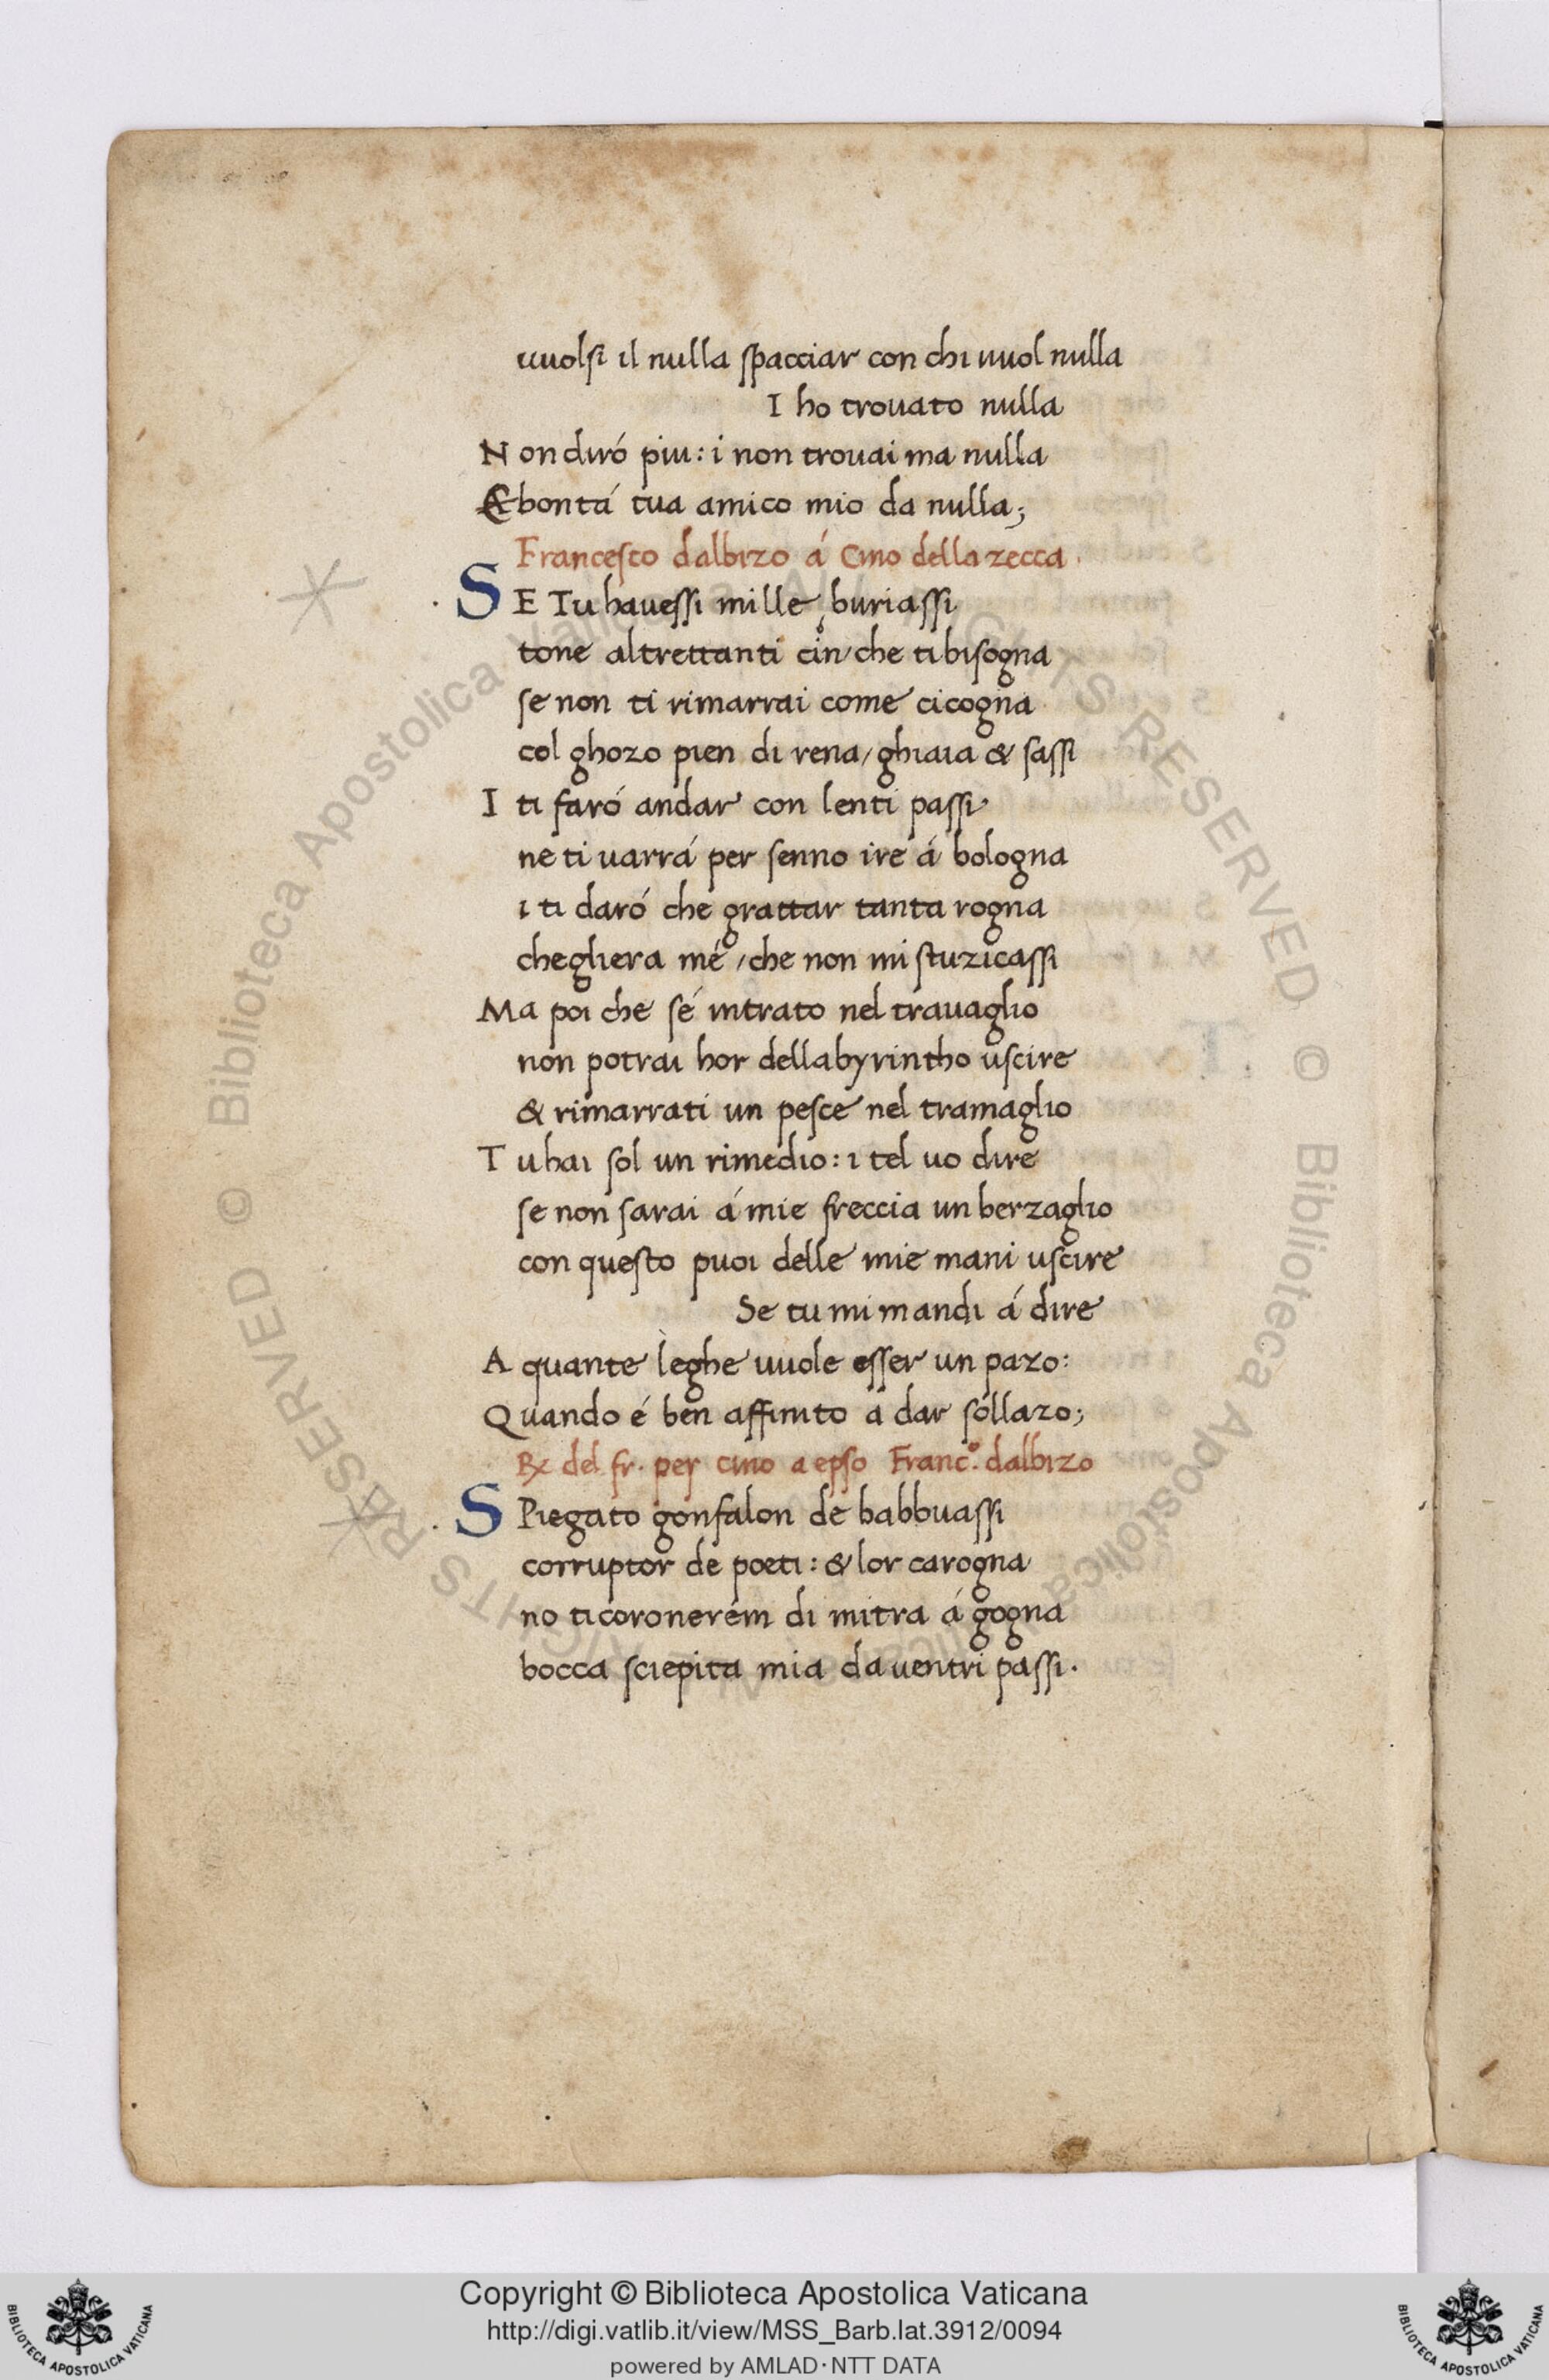 uuolsi il nulla spacciar con chi uuol nulla
I ho trouato nulla
N on diró piu: i non trouai ma nulla
& bontá tua amico mio da nulla;
Francesco dalbizo á Cino della zecca.
S E Tu hauessi mille buriassi
tone altrettanti cin / che ti bisogna
se non ti rimarrai come cicogna
col ghozo pien di rena / ghiaia & sassi
I ti faró andar con lenti passi
ne ti uarrá per senno ire á bologna
i ti daró che grattar tanta rogna
chegliera mé / che non mi stuzicassi
Ma poi che sé intrato nel trauaglio
non potrai hor dellabyrintho uscire
& rimarrati un pesce nel tramaglio
T u hai sol un rimedio: i tel uo dire
se non sarai á mie freccia un berzaglio
con questo puoi delle mie mani uscire
Se tu mi mandi á dire
A quante leghe uuole esser un pazo:
Quando é ben affinito a dar sollazo;
Rx del fr. per cino a epso Franc.º dalbizo
S Piegato gonfalon de babbuassi
corruptor de poeti: & lor carogna
no ti coronerém di mitra á gogna
bocca sciepita mia da uentri passi.
© Biblioteca Apostolica Vaticana ALL RIGHTS RESERVED © Biblioteca Apostolica Vaticana ALL RIGHTS RESERVED
Copyright © Biblioteca Apostolica Vaticana
http://digi.vatlib.it/view/MSS_Barb.lat.3912/0094
powered by AMLAD·NTT DATA
BIBLIOTECA APOSTOLICA VATICANA
BIBLIOTECA APOSTOLICA VATICANA